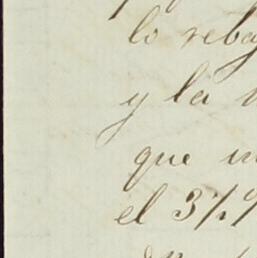 lo reba
y la
que in
el 3%